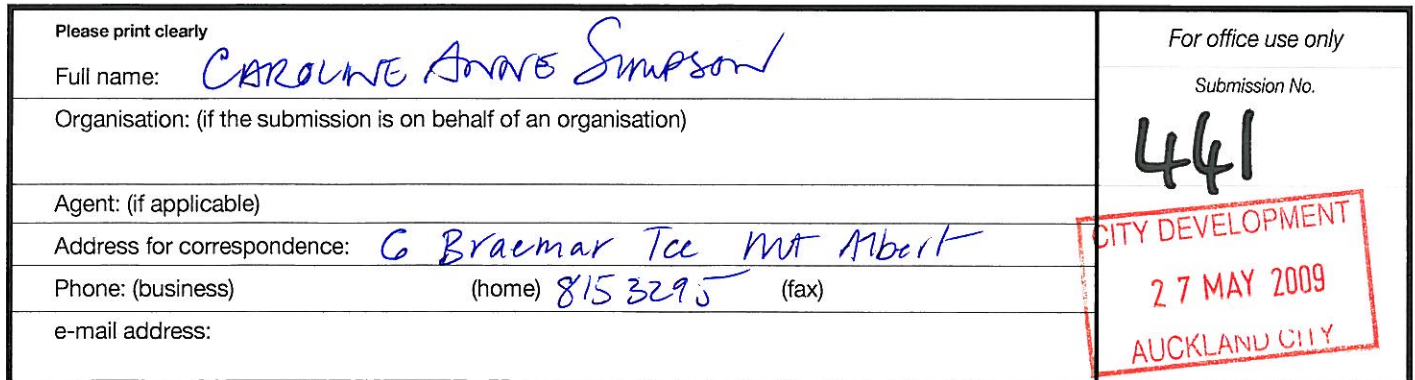 Please print clearly
Full name: CAROLINE ANNE SIMPSON
Organisation: (if the submission is on behalf of an organisation)
Agent: (if applicable)
Address for correspondence: 6 Braemar Tce Mt Albert
Phone: (business) (home) 8153295 (fax)
e-mail address:
For office use only
Submission No.
441
CITY DEVELOPMENT
27 MAY 2009
AUCKLAND CITY